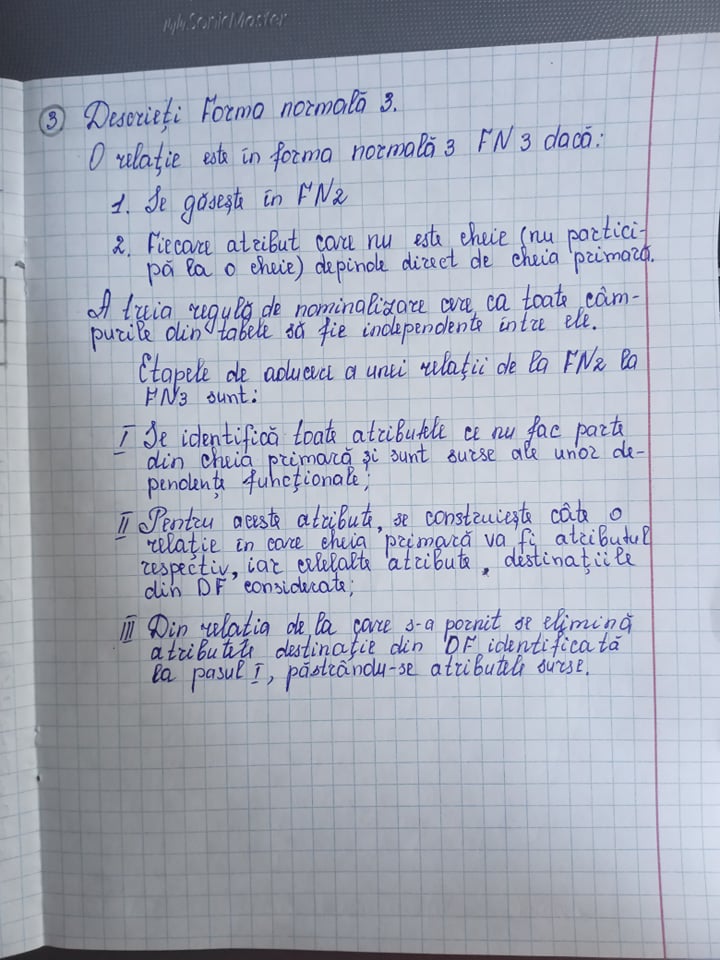 SonicMaster
3 Descrieți Forma normală 3.
O relație este în forma normală 3 FN 3 dacă:
1. Se găsește în FN2
2. Fiecare atribut care nu este cheie (nu partici-
pă la o cheie) depinde direct de cheia primară.
A treia regulă de nominalizare cere ca toate câm-
purile din tabele să fie independente între ele.
Etapele de aducere a unei relații de la FN2 la
FN3 sunt:
I Se identifică toate atributele ce nu fac parte
din cheia primară și sunt surse ale unor de-
pendențe funcționale;
II Pentru aceste atribute, se construiește câte o
relație în care cheia primară va fi atributul
respectiv, iar celelalte atribute, destinațiile
din DF considerate;
III Din relația de la care s-a pornit se elimină
atributele destinație din DF identificată
la pasul I, păstrându-se atributele surse.